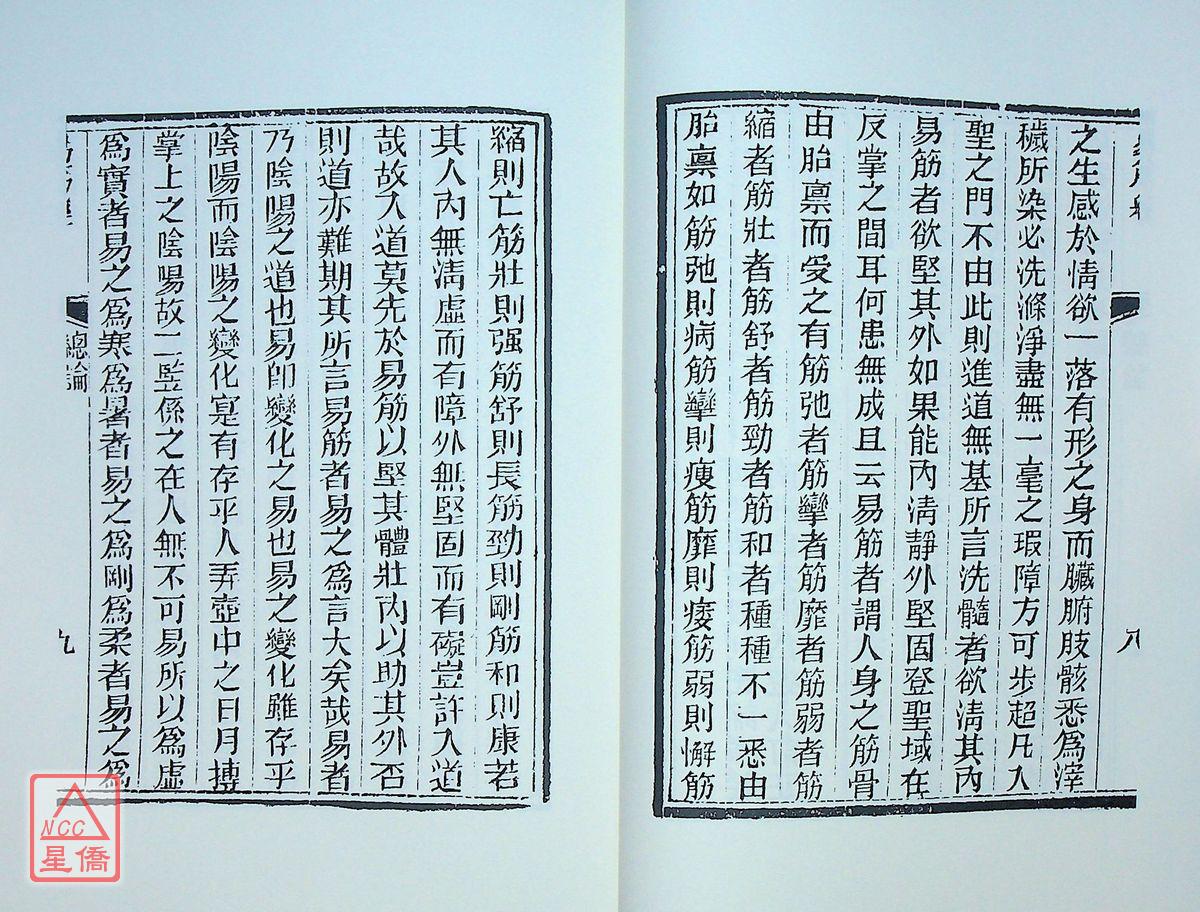 之生感於情欲一落有形之身而臟腑肢骸悉為滓
穢所染必洗滌淨盡無一毫之瑕障方可步超凡入
聖之門不由此則進道無基所言洗髓者欲淸其內
易筋者欲堅其外如果能內淸靜外堅固登聖域在
反掌之間耳何患無成且云易筋者謂人身之筋骨
由胎禀而受之有筋弛者筋攣者筋靡者筋弱者筋
縮者筋壯者筋舒者筋勁者筋和者種種不一悉由
胎禀如筋弛則病筋攣則瘦筋靡則痿筋弱則懈筋
八
縮則亡筋壯則强筋舒則長筋勁則剛筋和則康若
其人內無淸虛而有障外無堅固而有礙豈許入道
哉故入道莫先於易筋以堅其體壯內以助其外否
則道亦難期其所言易筋者易之為言大矣哉易者
乃陰陽之道也易卽變化之易也易之變化雖存乎
陰陽而陰陽之變化寔有存乎人弄壺中之日月摶
掌上之陰陽故二竪係之在人無不可易所以為虛
為實者易之為寒為暑者易之為剛為柔者易之為
總論
九
NCC
星僑